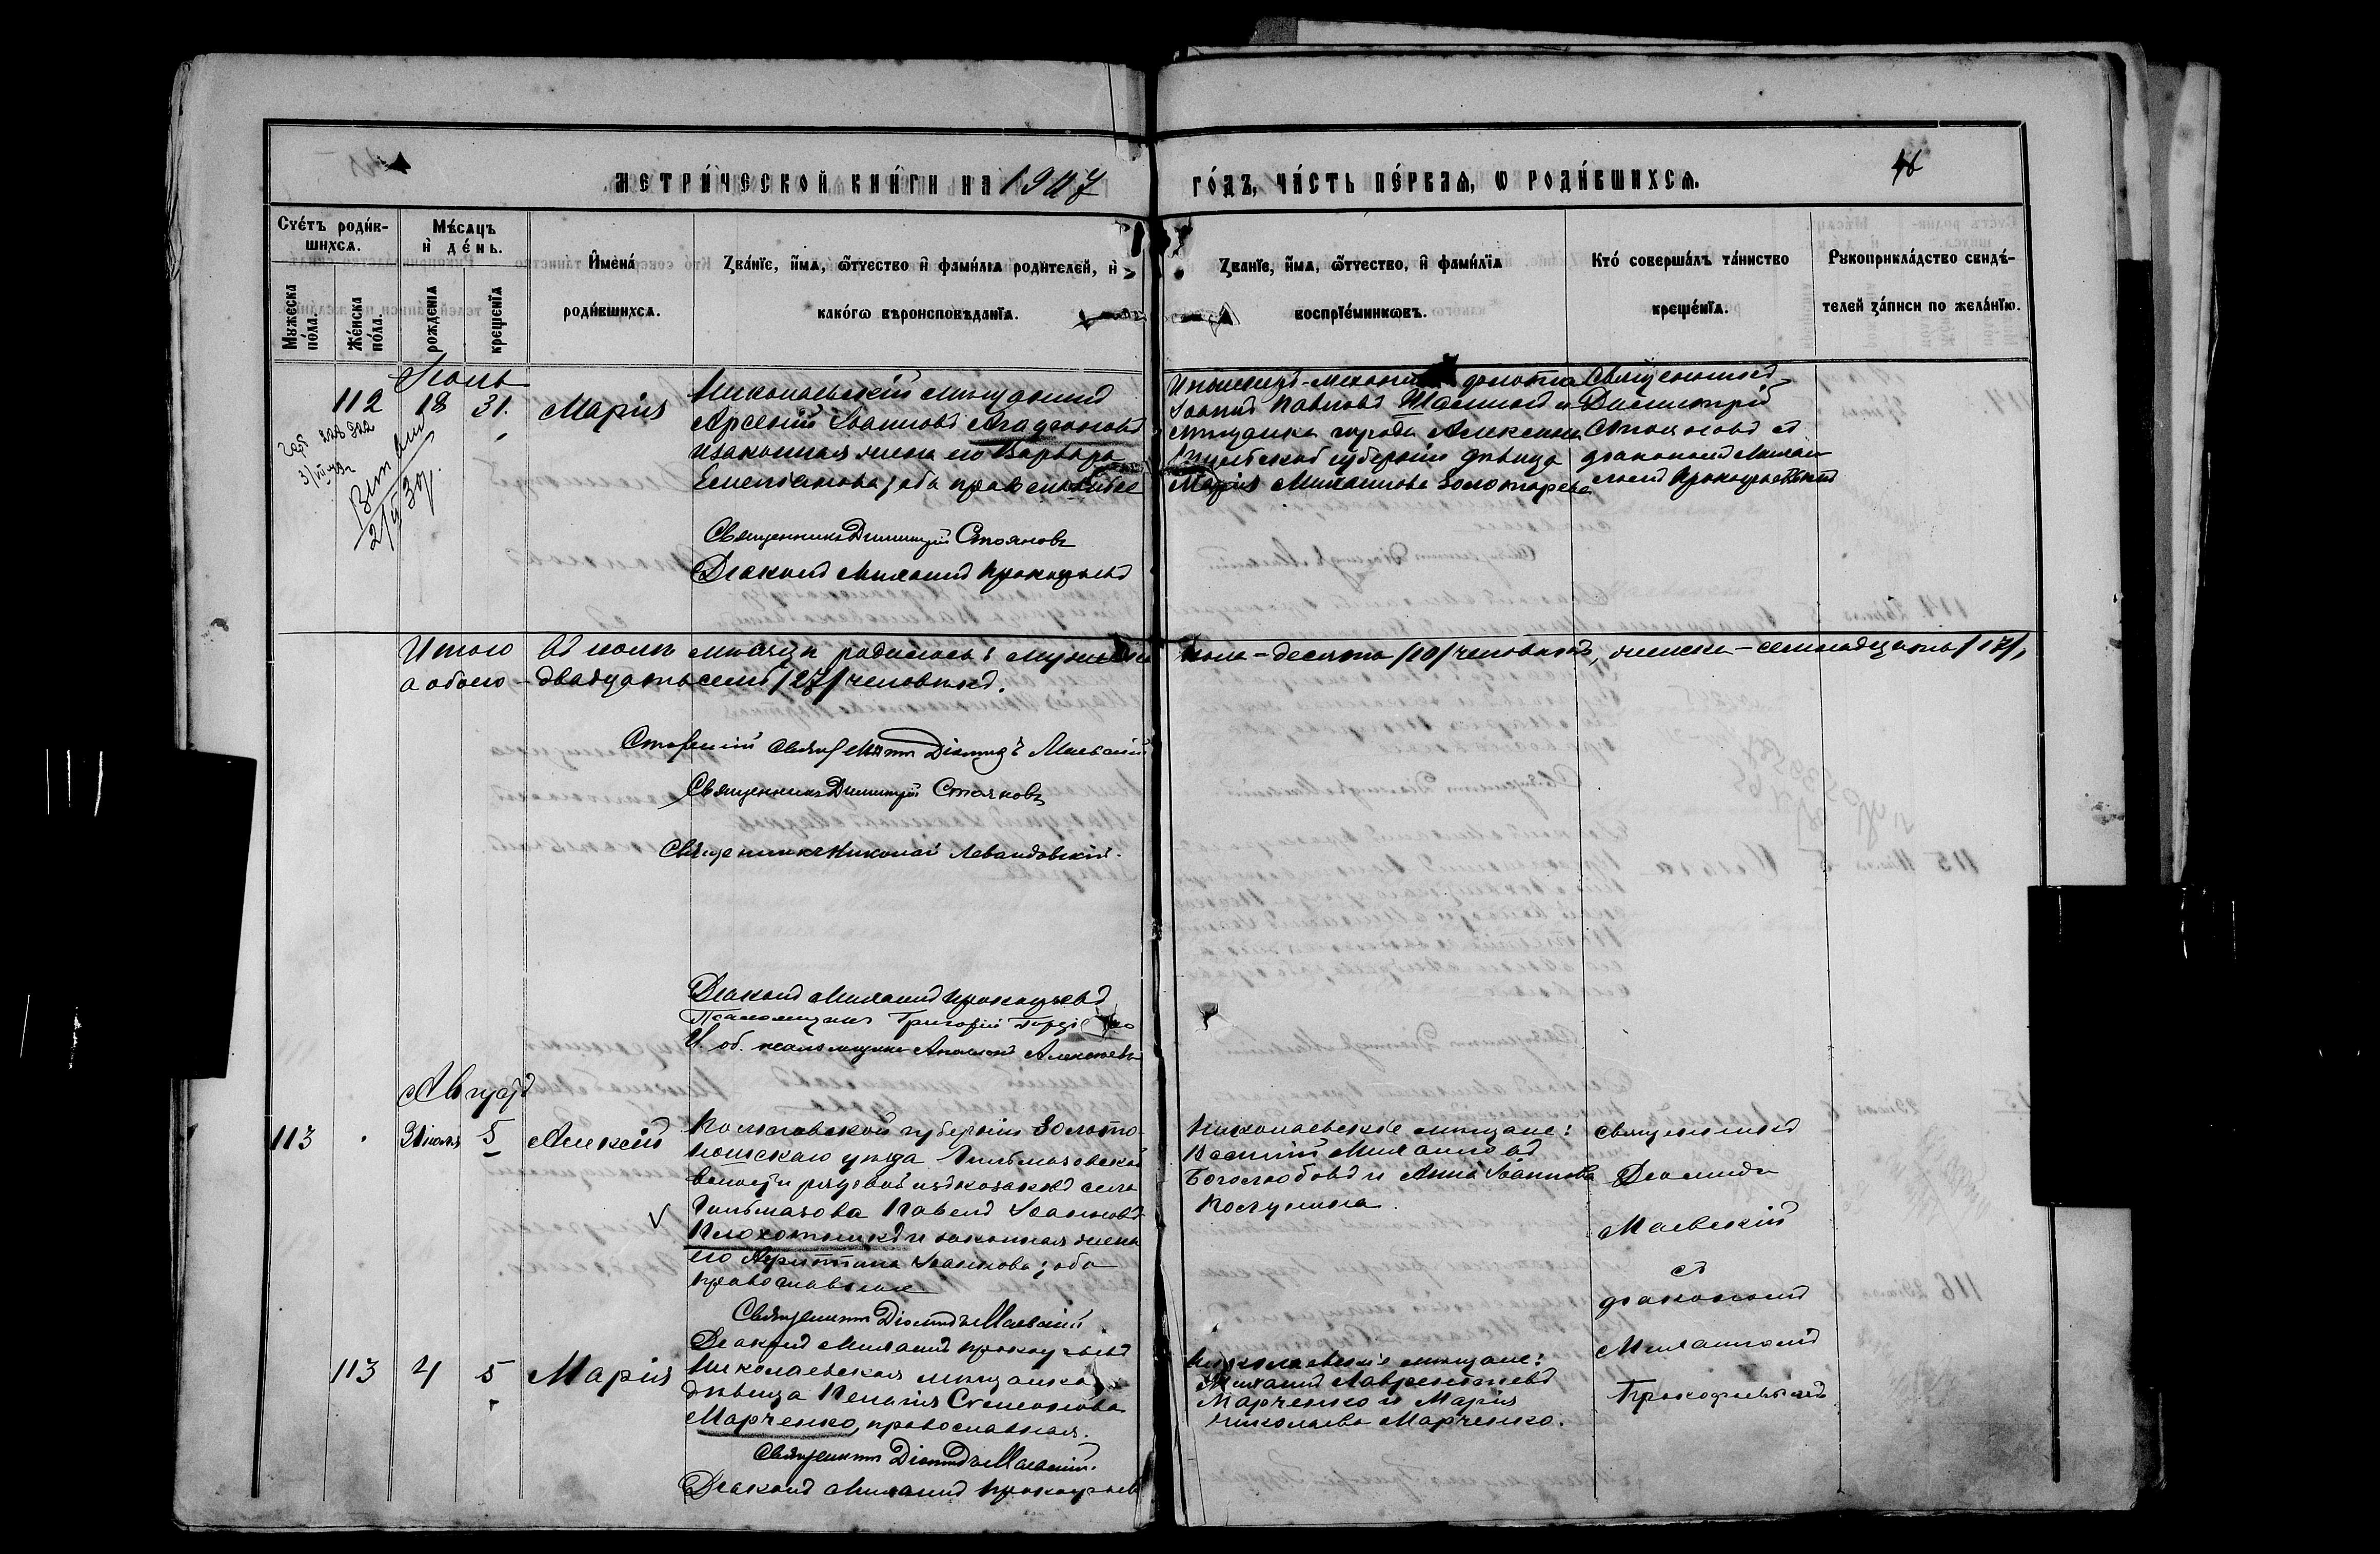 МЕТРИ́ЧЕСКОЙ КНИ́ГИ НА 1907
ГО́ДЪ, ЧА́СТЬ ПЕ́РВАЯ, Ѡ РОДИ́ВШИХСЯ.
46
Сче́тъ роди́в-
шихся.
Мѣ́сяцъ
и҆ де́нь.
Мꙋжеска по́ла.
Же́нска по́ла.
рожденїѧ
крещенїѧ
И҆мена́
роди́вшихся.
Зва́нїе, и҆́мѧ, ѻ҆́тчество и҆ фами́лїѧ родителей, и҆
како́гѡ вѣроисповѣданїѧ.
Зва́нїе, и҆́мѧ, ѻ҆́тчество, и҆ фами́лїѧ
воспрїе́мниковъ.
Кто́ соверша́лъ та́инство
креще́нїѧ.
Рꙋкоприкла́дство свидѣ́-
телей за́писи по жела́нїю.
Іюль
112 18 31. Марія
Николаевскій мѣщанинъ
Арсеній Іоанновъ Агаѳоновъ
и законная жена его Варвара
Емеліанова; оба православные
Священникъ Димитрій Стояновъ
Діаконъ Михаилъ Прокофьевъ
флота
Іоаннъ Павловъ и
мѣщанка города Алексина
Тульской губерніи дѣвица
Марія Михаилова Золотарева
Священникъ
Димитрій
Стояновъ съ
діакономъ Михаи-
ломъ Прокофьевымъ
Итого въ іюлѣ мѣсяцѣ родилось: мужеска пола - десять /10/ человѣкъ, женска - семнадцать /17/,
а обоего - двадцать семь /27/ человѣкъ.
Старшій Священникъ Діомидъ Маевскій
Священникъ Димитрій Стояновъ
Священникъ Николай Левандовскій.
Діаконъ Михаилъ Прокофьевъ
Псаломщикъ Григорій
И. об. псаломщика Алексѣевъ
Августъ
113 31 іюля 5 Алексій
Полтавской губерніи Золото-
ношскаго уѣзда Гельмязовской
волости рядовой изъ козаковъ села
Гельмязова Павелъ Іоанновъ
и законная жена
его Іоаннова; оба
православные
Священникъ Діомидъ Маевскій
Діаконъ Михаилъ Прокофьевъ
Николаевскіе мѣщане:
Василій Михаиловъ
Боголюбовъ и Анна Іоаннова
священникъ
Діомидъ
Маевскій
съ
діакономъ
Михаиломъ
Прокофьевымъ
113 4 5 Марія
Николаевская мѣщанка
дѣвица Пелагія Стефанова
Марченко, православная.
Священникъ Діомидъ Маевскій.
Діаконъ Михаилъ Прокофьевъ
Николаевскіе мѣщане:
Михаилъ Лаврентіевъ
Марченко и Марія
Николаева Марченко.